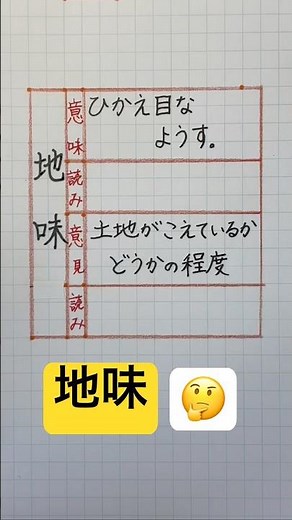 地味
意味
ひかえ目な
ようす。
読み
意見
土地がこえているか
どうかの程度
読み
地味